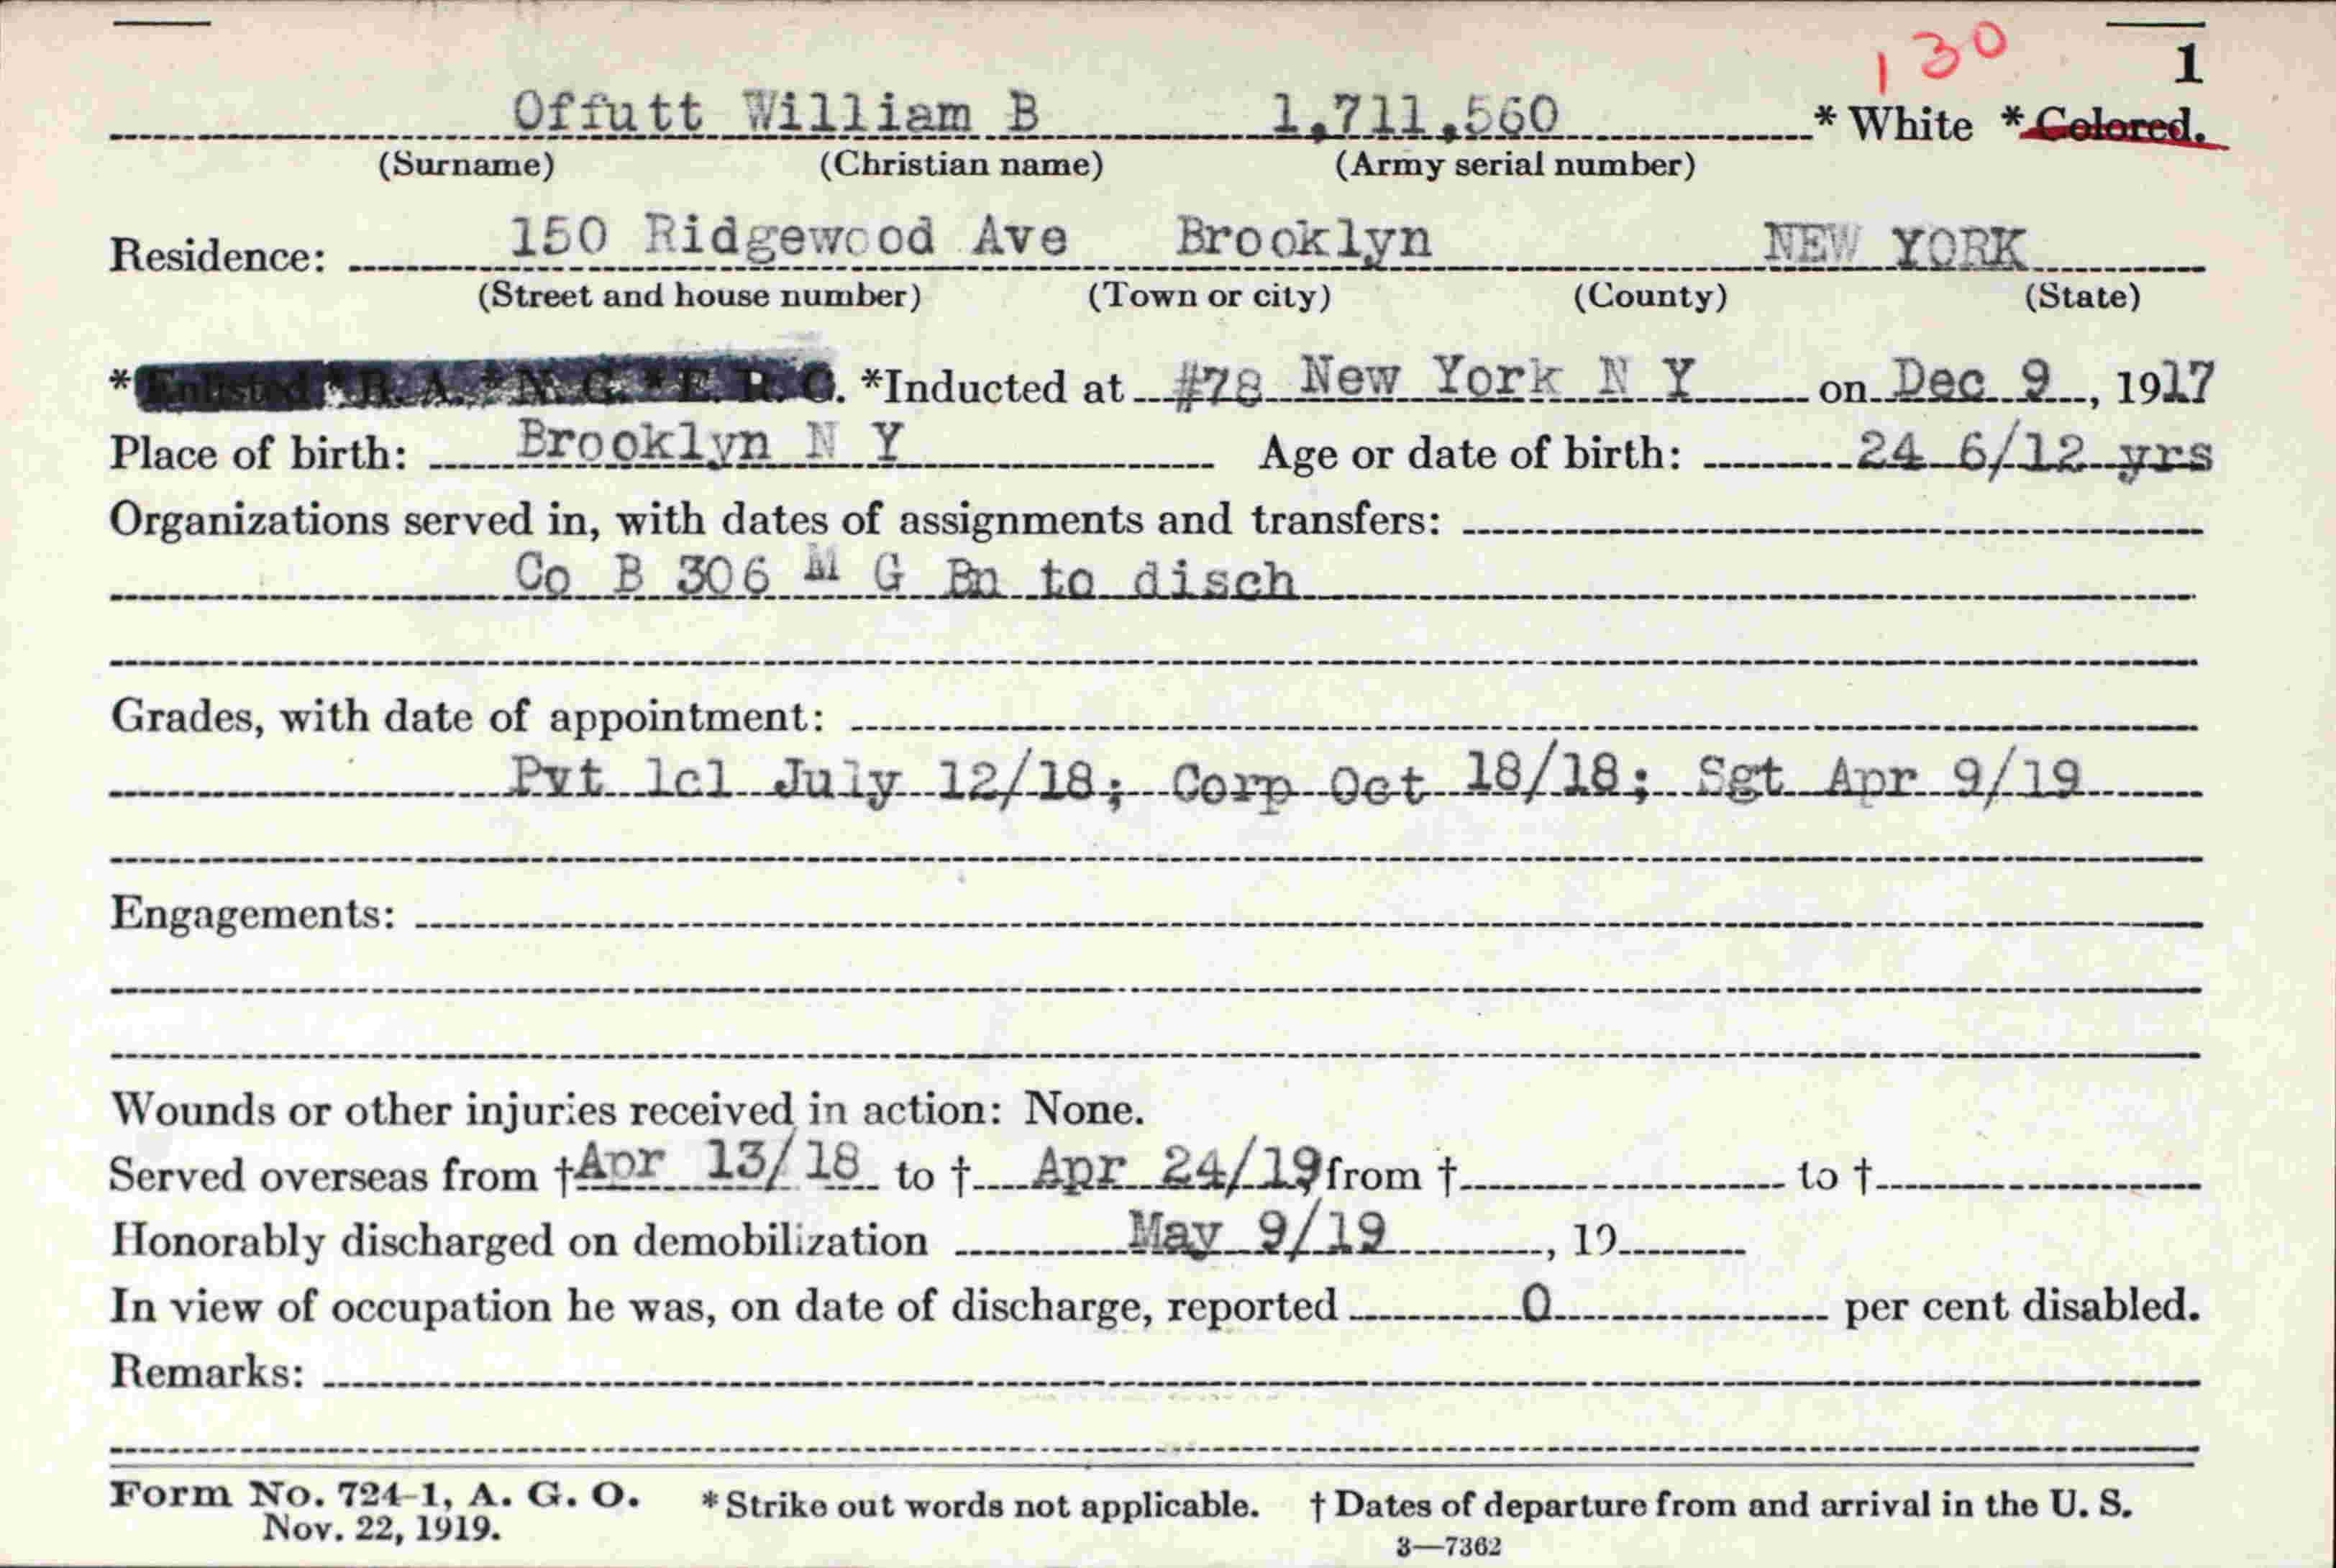 130 1
Offutt William B 1,711,560 * White * Colored.
(Surname) (Christian name) (Army serial number)
Residence: 150 Ridgewood Ave Brooklyn NEW YORK
(Street and house number) (Town or city) (County) (State)
* Enlisted * R. A. * N. G. * E. R. C. *Inducted at #78 New York N Y on Dec 9, 1917
Place of birth: Brooklyn N Y Age or date of birth: 24 6/12 yrs
Organizations served in, with dates of assignments and transfers:
Co B 306 M G Bn to disch
Grades, with date of appointment:
Pvt 1cl July 12/18; Corp Oct 18/18; Sgt Apr 9/19
Engagements:
Wounds or other injuries received in action: None.
Served overseas from †Apr 13/18 to † Apr 24/19, from † to †
Honorably discharged on demobilization May 9/19, 19
In view of occupation he was, on date of discharge, reported 0 per cent disabled.
Remarks:
Form No. 724-1, A. G. O. * Strike out words not applicable. † Dates of departure from and arrival in the U. S.
Nov. 22, 1919.
3—7362